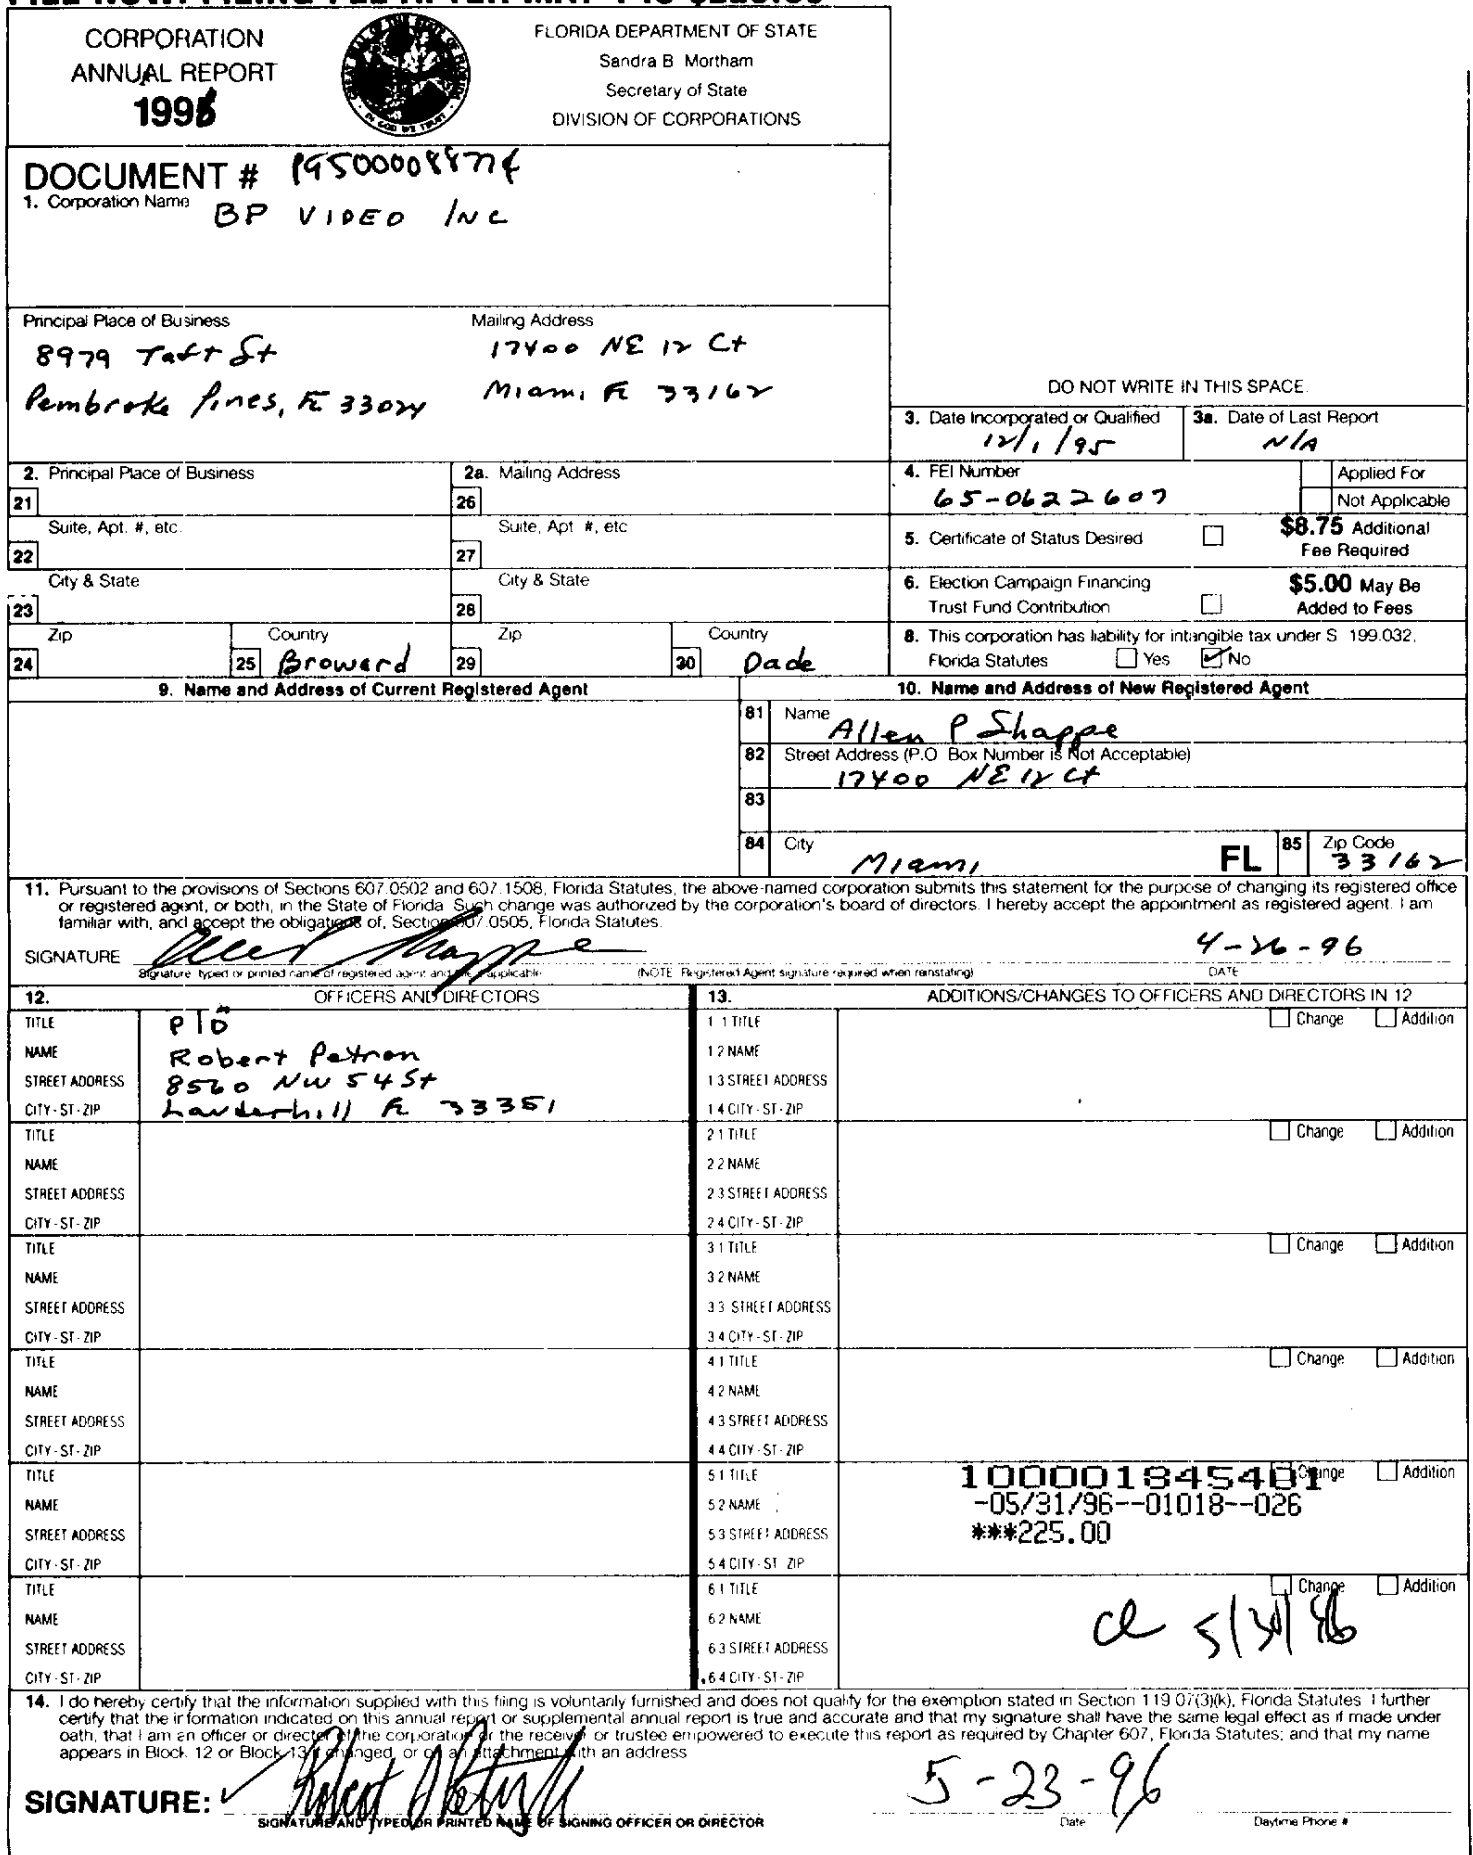 CORPORATION
ANNUAL REPORT
1996
FLORIDA DEPARTMENT OF STATE
Sandra B Mortham
Secretary of State
DIVISION OF CORPORATIONS
DOCUMENT #
1. Corporation Name BP VIDEO INC
Principal Place of Business
8979 Taft St
Pembroke Pines, FL 33024
Mailing Address
17400 NE 12 Ct
Miami FL 33162
DO NOT WRITE IN THIS SPACE
3. Date Incorporated or Qualified
12/1/95
3a. Date of Last Report
N/A
2. Principal Place of Business
21
Suite, Apt. #, etc.
22
City & State
23
Zip
24
Country
25 Broward
2a. Mailing Address
26
Suite, Apt #, etc
27
City & State
28
Zip
29
Country
30 Dade
4. FEI Number
65-0622607
Applied For
Not Applicable
5. Certificate of Status Desired
$8.75 Additional
Fee Required
6. Election Campaign Financing
Trust Fund Contribution
$5.00 May Be
Added to Fees
8. This corporation has liability for intangible tax under S 199.032,
Florida Statutes Yes No
9. Name and Address of Current Registered Agent
10. Name and Address of New Registered Agent
81 Name
Allen P Shappe
82 Street Address (P.O Box Number is Not Acceptable)
17400 NE 12 Ct
83
84 City
Miami FL
85 Zip Code
33162
11. Pursuant to the provisions of Sections 607.0502 and 607.1508, Florida Statutes, the above-named corporation submits this statement for the purpose of changing its registered office
or registered agent, or both, in the State of Florida Such change was authorized by the corporation's board of directors. I hereby accept the appointment as registered agent. I am
familiar with, and accept the obligations of, Section 607.0505, Florida Statutes.
SIGNATURE
4-26-96
Signature typed or printed name of registered agent and title if applicable
(NOTE Registered Agent signature required when reinstating)
DATE
12. OFFICERS AND DIRECTORS
TITLE
NAME Robert Petran
STREET ADDRESS 8560 NW 54 St
CITY-ST-ZIP Lauderhill FL 33351
TITLE
NAME
STREET ADDRESS
CITY-ST-ZIP
TITLE
NAME
STREET ADDRESS
CITY-ST-ZIP
TITLE
NAME
STREET ADDRESS
CITY-ST-ZIP
TITLE
NAME
STREET ADDRESS
CITY-ST-ZIP
TITLE
NAME
STREET ADDRESS
CITY-ST-ZIP
13. ADDITIONS/CHANGES TO OFFICERS AND DIRECTORS IN 12
1 1 TITLE Change Addition
1 2 NAME
1 3 STREET ADDRESS
1 4 CITY-ST-ZIP
2 1 TITLE Change Addition
2 2 NAME
2 3 STREET ADDRESS
2 4 CITY-ST-ZIP
3 1 TITLE Change Addition
3 2 NAME
3 3 STREET ADDRESS
3 4 CITY-ST-ZIP
4 1 TITLE Change Addition
4 2 NAME
4 3 STREET ADDRESS
4 4 CITY-ST-ZIP
5 1 TITLE 100001845401 Change Addition
5 2 NAME -05/31/96--01018--026
5 3 STREET ADDRESS ***225.00
5 4 CITY-ST ZIP
6 1 TITLE Change Addition
6 2 NAME
6 3 STREET ADDRESS
6 4 CITY-ST-ZIP
14. I do hereby certify that the information supplied with this filing is voluntarily furnished and does not qualify for the exemption stated in Section 119 07(3)(k), Florida Statutes I further
certify that the information indicated on this annual report or supplemental annual report is true and accurate and that my signature shall have the same legal effect as if made under
oath, that I am an officer or director of the corporation or the receiver or trustee empowered to execute this report as required by Chapter 607, Florida Statutes; and that my name
appears in Block 12 or Block 13 if changed, or on an attachment with an address
SIGNATURE:
5-23-96
SIGNATURE AND TYPED OR PRINTED NAME OF SIGNING OFFICER OR DIRECTOR
Date
Daytime Phone #